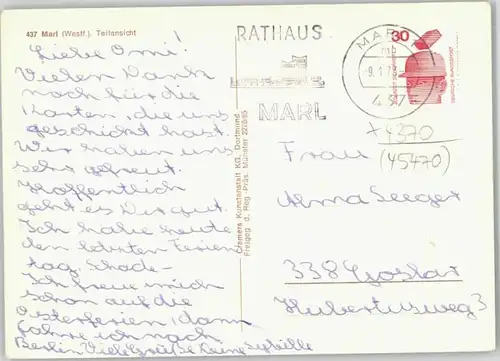 437 Marl (Westf.) Teilansicht
Liebe Omi!
Vielen Dank
noch für die
Karten, die uns
geschickt hast.
Wir haben uns
sehr gefreut.
Hoffentlich
geht es Dir gut.
Ich habe heute
den letzten Ferien
tag. Schade –
Ich freue mich
schon auf die
Osterferien, dann
fahre ich nach
Berlin. Viele Grüße Deine Sybille
Cramers Kunstanstalt KG. Dortmund
Freigeg. d. Reg.-Präs. Münster
RATHAUS
MARL
MARL
mb
437
30
DEUTSCHE BUNDESPOST
x 4370
(45470)
Frau
Alma Seeger
338 Goslar
Hubertusweg 3